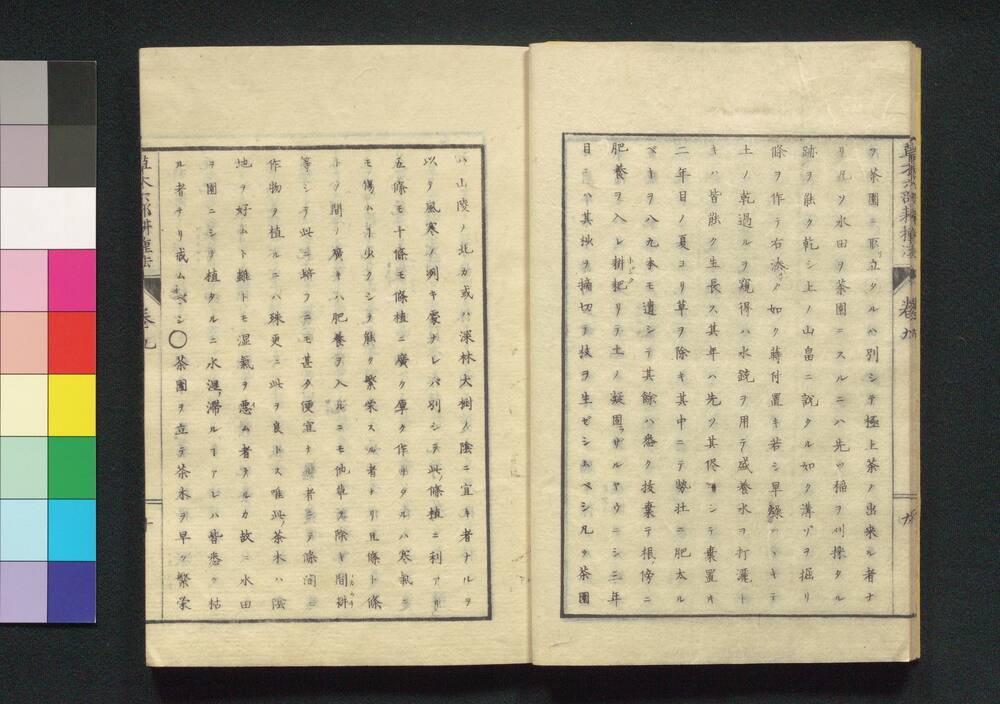 ヲ茶園ニ取立タルハ別シテ極上茶ノ出来ル者ナ
リ凡ソ水田ヲ茶園ニスルニハ先ツ稲ヲ刈採タル
跡ヲ能ク乾シ上ノ山畠ニ説タル如ク溝ヲ掘リ
條ヲ作テ右ノ如ク蒔付置キ若シ旱燥ツヾキテ
土ノ乾過ルヲ窺得ハ水銃ヲ用テ盛養水ヲ打灑ト
キハ皆能ク生長ス其年ハ先ツ其侭ニシテ棄置キ
二年目ノ夏ヨリ草ヲ除キ其中ニテ勢壮ニ肥太ル
ベキヲ八九本モ遺シテ其餘ハ悉ク抜棄テ根傍ニ
肥養ヲ入レ耕耙リテ土ノ凝固ラザルヤウニシ三年
目ニハ其梢ヲ摘切テ枝ヲ生ゼシムベシ凡ソ茶園
草木六部耕種法
卷九
ハ山陵ノ北カ或ハ深林大樹ノ陰ニ宜キ者ナルヲ
以タ風寒ノ洌キ處ナレバ別シテ此條植ニ利アリ
五條モ十條モ條植ニ廣ク厚ク作リタルハ寒氣ニ
モ傷ムヿ少クシテ能ク繁栄スル者ナリ且條ト條
トノ間ノ廣キハ肥養ヲ入ルニモ他草ヲ除キ間耕
等シテ此ニ培フニモ甚タ便宜キ者ニテ條間ニ
作物ヲ植ルニハ殊更ニ此ヲ良トス唯此茶木ハ陰
地ヲ好ムト雖トモ湿氣ヲ悪ム者ナルカ故ニ水田
ヲ園ニシテ植タルニ水濕滞ルヿアレハ皆悉ク枯
ル者ナリ戒ムベシ〇茶園ヲ立テ茶木ヲ早ク繁栄
草木六部耕種法
卷九